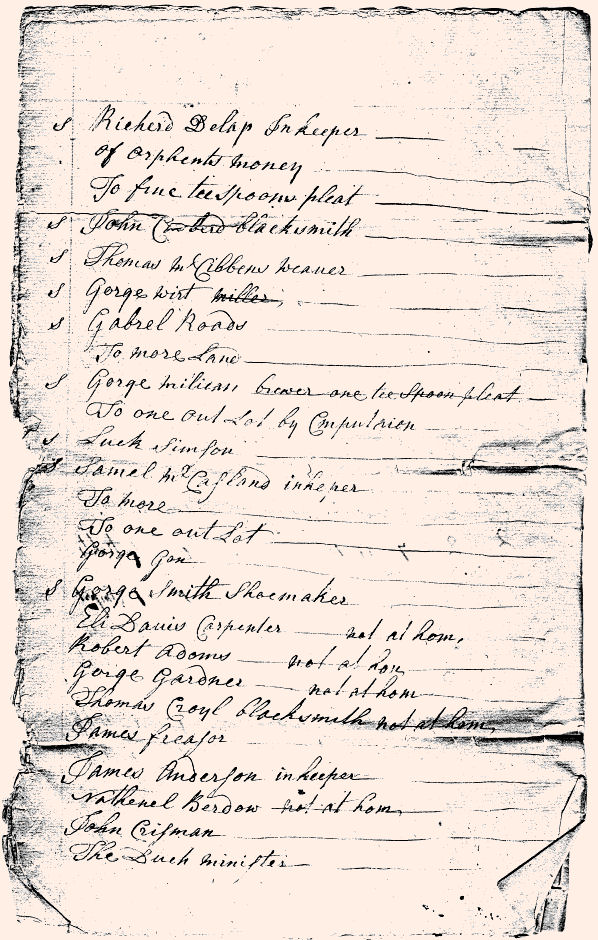 s Richerd Delap Inkeeper
of orphents money
To five teespoons pleat
s John blacksmith
s Thomas McCibbens weaver
s Gorge wirt miller
s Gabrel Roads
To more Land
s Gorge milican brewer one tee Spoon pleat
To one out Lot by Cmpulsion
s Luck Simson
s Samel inkeper
To more
To one out Lot
Gorge Gon
s Gorge Smith Shoemaker
Eli Davis Carpenter not at hom,
Robert Adoms not at hom
Gorge Gardner not at hom
Thomas Croyl blacksmith not at hom,
James freasor
James Anderson inkeeper
Nathenel Berdow not at hom
John Crisman
The Duch minister